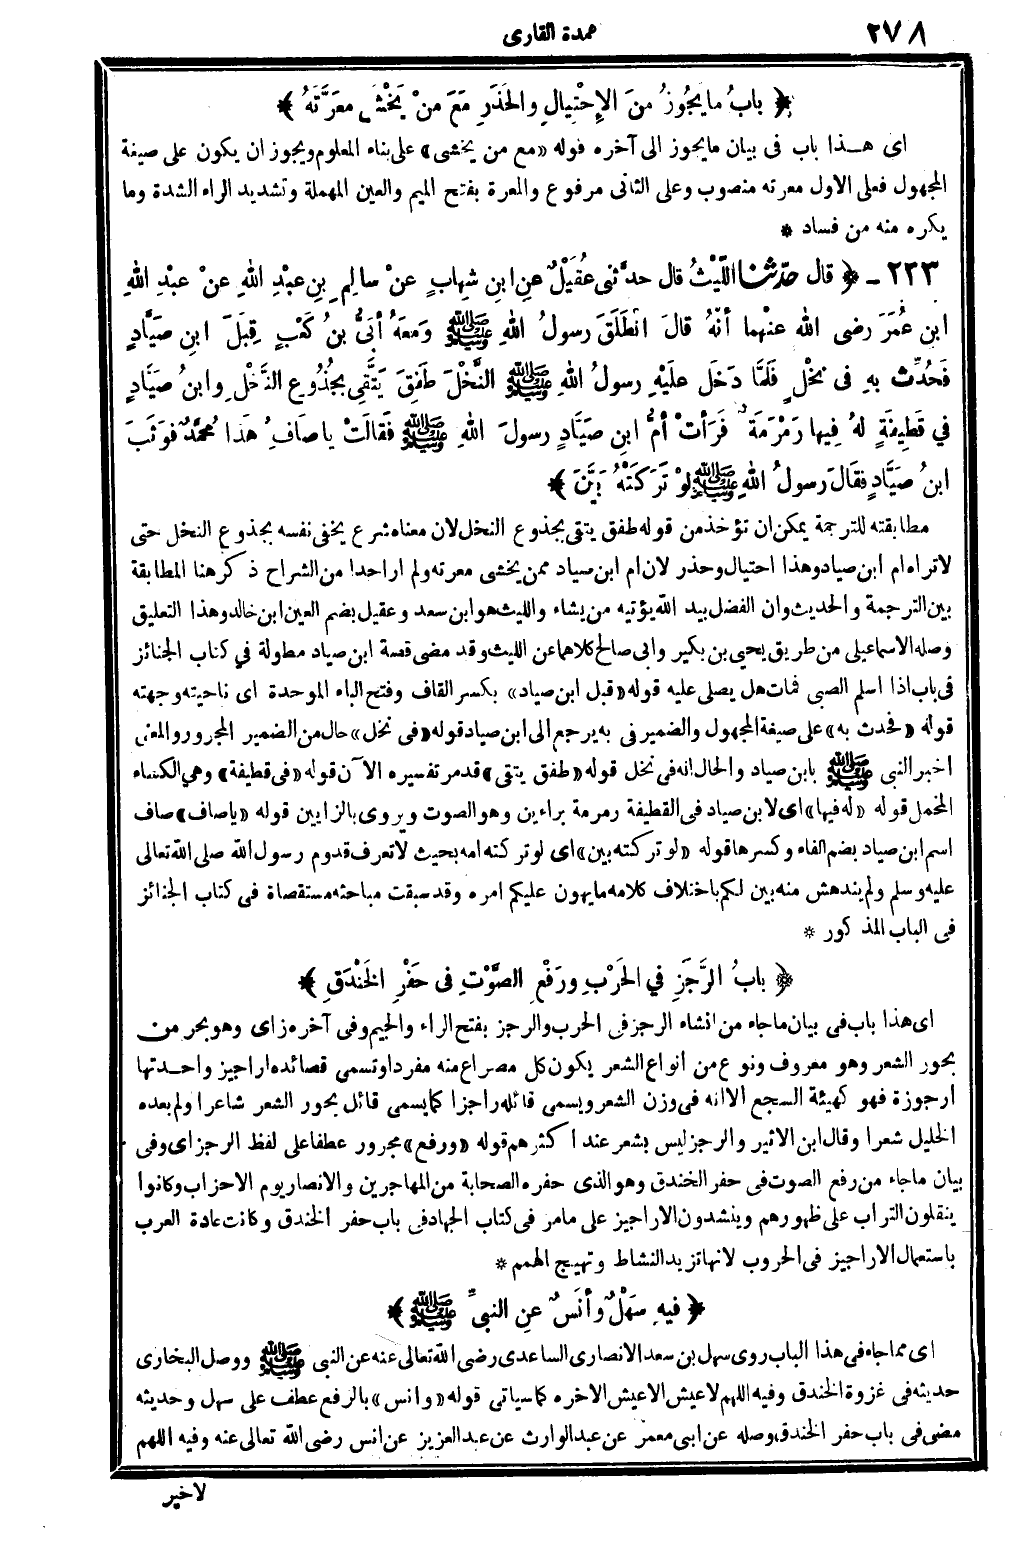 ٢٧٨
عمدة القارى
﴿ بابُ ما يَجُوزُ منَ الإِحْتِيالِ والحَذَرِ مَعَ منْ يَخْشَى معَرَّتَهُ ﴾
اى هـذا باب فى بيان مايجوز الى آخره قوله «مع من يخشى» على بناء المعلوم ويجوز ان يكون على صيغة
المجهول فعلى الاول معرته منصوب وعلى الثانى مرفوع والمعرة بفتح الميم والعين المهملة وتشديد الراء الشدة وما
يكره منه من فساد *
٢٣٣ ـ ﴿ قال حدّثنا اللّيْثُ قال حدَّثنى عُقَيْلٌ عنِ ابنِ شِهابٍ عنْ سالِمِ بنِ عبْدِ اللهِ عنْ عبْدِ اللهِ
ابنِ عُمَرَ رضى الله عنْهما أنَّهُ قالَ انْطَلَقَ رسولُ اللهِ ﷺ ومَعَهُ أُبَىُّ بنُ كَعْبٍ قِبَلَ ابنِ صَيَّادٍ
فَحُدِّثَ بهِ فى نخْلٍ فَلَمَّا دَخَلَ علَيْهِ رسولُ اللهِ ﷺ النَّخْلَ طَفِقَ يَتَّقِى بجُذُوعِ النَّخْلِ وابنُ صَيَّادٍ
في قَطِيفَةٍ لهُ فِيها رَمْرَمَةٌ فَرَأتْ أمُّ ابنِ صَيَّادٍ رسولَ اللهِ ﷺ فَقالَتْ يا صافِ هَذا مُحمَّدٌ فَوَثَبَ
ابنُ صَيَّادٍ فقال رسولُ اللهِ ﷺ لوْ تَرَكَتْهُ بَيَّنَ ﴾
مطابقته للترجمة يمكن ان تؤخذ من قوله طفق يتقى بجذوع النخل لان معناه شرع يخفى نفسه بجذوع النخل حتى
لا تراه ام ابن صياد وهذا احتيال وحذر لان ام ابن صياد ممن يخشى معرته ولم ار احدا من الشراح ذكر هنا المطابقة
بين الترجمة والحديث وان الفضل بيد الله يؤتيه من يشاء والليث هو ابن سعد وعقيل بضم العين ابن خالد وهذا التعليق
وصله الاسماعيلى من طريق يحيى بن بكير وابى صالح كلاهما عن الليث وقد مضى قصة ابن صياد مطولة في كتاب الجنائز
فى باب اذا اسلم الصبى فمات هل يصلى عليه قوله «قبل ابن صياد» بكسر القاف وفتح الباء الموحدة اى ناحيته وجهته
قوله «فحدث به» على صيغة المجهول والضمير فى به يرجع الى ابن صياد قوله «فى نخل» حال من الضمير المجرور والمعنى
اخبر النبى ﷺ بابن صياد والحال انه فى نخل قوله «طفق يتقى» قد مر تفسيره الآن قوله «فى قطيفة» وهي الكساء
المخمل قوله «له فيها» اى لابن صياد فى القطيفة رمرمة براءين وهو الصوت ويروى بالزايين قوله «ياصاف» صاف
اسم ابن صياد بضم الفاء وكسرها قوله «لو تركته بين» اى لو تركته امه بحيث لا تعرف قدوم رسول الله صلى الله تعالى
عليه وسلم ولم يندهش منه بين لكم باختلاف كلامه ما يهون عليكم امره وقد سبقت مباحثه مستقصاة فى كتاب الجنائز
فى الباب المذكور *
﴿ بابُ الرَّجَزِ في الحَرْبِ ورَفْعِ الصَّوْتِ فى حَفْرِ الخَنْدَقِ ﴾
اى هذا باب فى بيان ما جاء من انشاء الرجز فى الحرب والرجز بفتح الراء والجيم وفى آخره زاى وهو بحر من
بحور الشعر وهو معروف ونوع من أنواع الشعر يكون كل مصراع منه مفردا وتسمى قصائده اراجيز واحـدتها
أرجوزة فهو كهيئة السجع الا انه فى وزن الشعر ويسمى قائله راجزا كما يسمى قائل بحور الشعر شاعرا ولم يعده
الخليل شعرا وقال ابن الاثير والرجز ليس بشعر عند اكثرهم قوله «ورفع» مجرور عطفا على لفظ الرجز اى وفى
بيان ماجاء من رفع الصوت فى حفر الخندق وهو الذى حفره الصحابة من المهاجرين والانصار يوم الاحزاب وكانوا
ينقلون التراب على ظهورهم وينشدون الاراجيز على مامر فى كتاب الجهاد فى باب حفر الخندق وكانت عادة العرب
باستعمال الاراجيز فى الحروب لانها تزيد النشاط وتهيج الهمم *
﴿ فيهِ سَهْلٌ وأنَسٌ عنِ النبيِّ ﷺ ﴾
اى مما جاء فى هذا الباب روى سهل بن سعد الانصارى الساعدى رضى الله تعالى عنه عن النبى ﷺ ووصل البخارى
حديثه فى غزوة الخندق وفيه اللهم لا عيش الا عيش الآخره كما سياتى قوله «وانس» بالرفع عطف على سهل وحديثه
مضى فى باب حفر الخندق وصله عن ابى معمر عن عبد الوارث عن عبد العزيز عن انس رضى الله تعالى عنه وفيه اللهم
لا خير